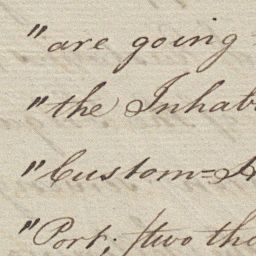 "are going
"the Inhab
"Custom=H
"Port; two tho